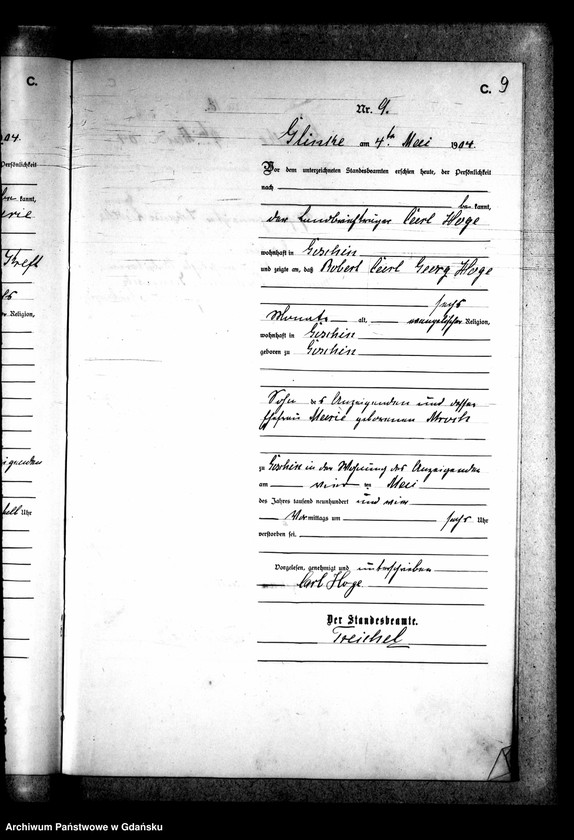 C.
904.
Persönlichkeit
Religion,
igenden
Uhr
C. 9
Nr. 9.
Glinke am 4ten Mai 1904.
Vor dem unterzeichneten Standesbeamten erschien heute, der Persönlichkeit
nach
be kannt,
der Landbriefträger Carl Hoge
wohnhaft in Goschin
und zeigte an, daß Robert Carl Georg Hoge
sechs
Monate alt, evangelischer Religion,
wohnhaft in Goschin
geboren zu Goschin
Sohn des Anzeigenden und dessen
Ehefrau Marie geborenen
zu Goschin in der Wohnung des Anzeigenden
am vier ten Mai
des Jahres tausend neunhundert und vier
Vor mittags um sechs Uhr
verstorben sei.
Vorgelesen, genehmigt und unterschrieben
Carl Hoge
Der Standesbeamte.
Treichel
Archiwum Państwowe w Gdańsku